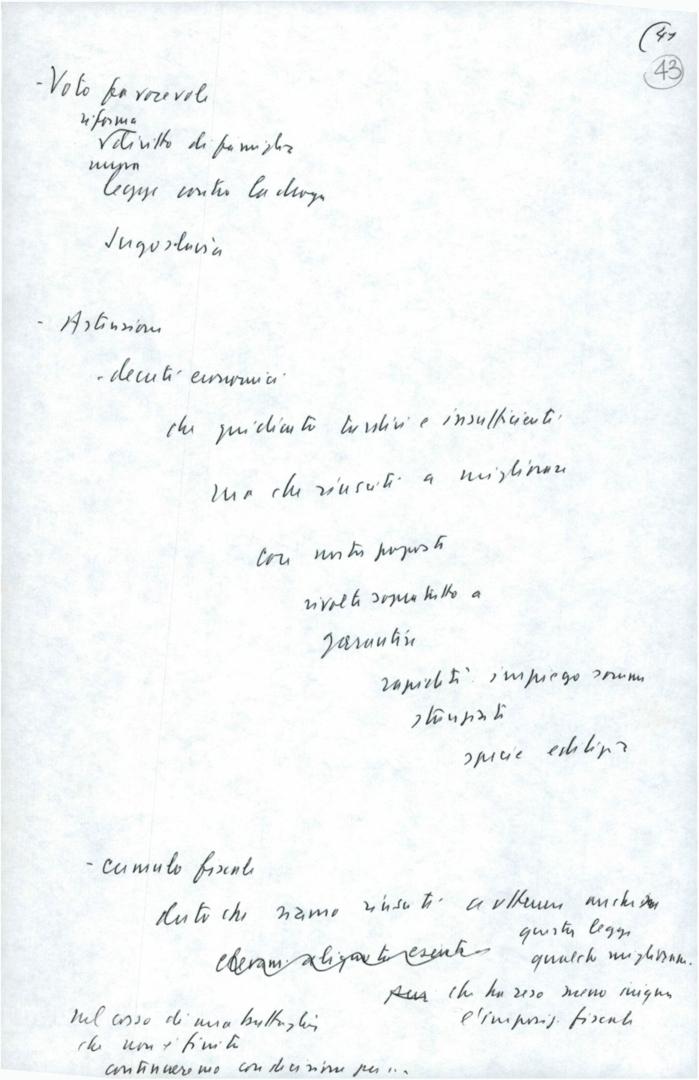 (41
43
- Voto favorevole
riforma
√ diritto di famiglia
nuova
legge contro la droga
Jugoslavia
- Astensione
- decreti economici
che giudicati tardivi e insufficienti
ma che riusciti a migliorare
con nostre proposte
rivolte soprattutto a
garantire
rapidità impiego somme
stanziate
specie edilizia
- cumulo fiscale
dato che siamo riusciti a ottenere anche in
questa legge
qualche miglioram.
elevam. aliquote esenti
che ha reso meno iniqua
l'imposiz. fiscale
nel corso di una battaglia
che non è finita
continueremo con decisione per ...